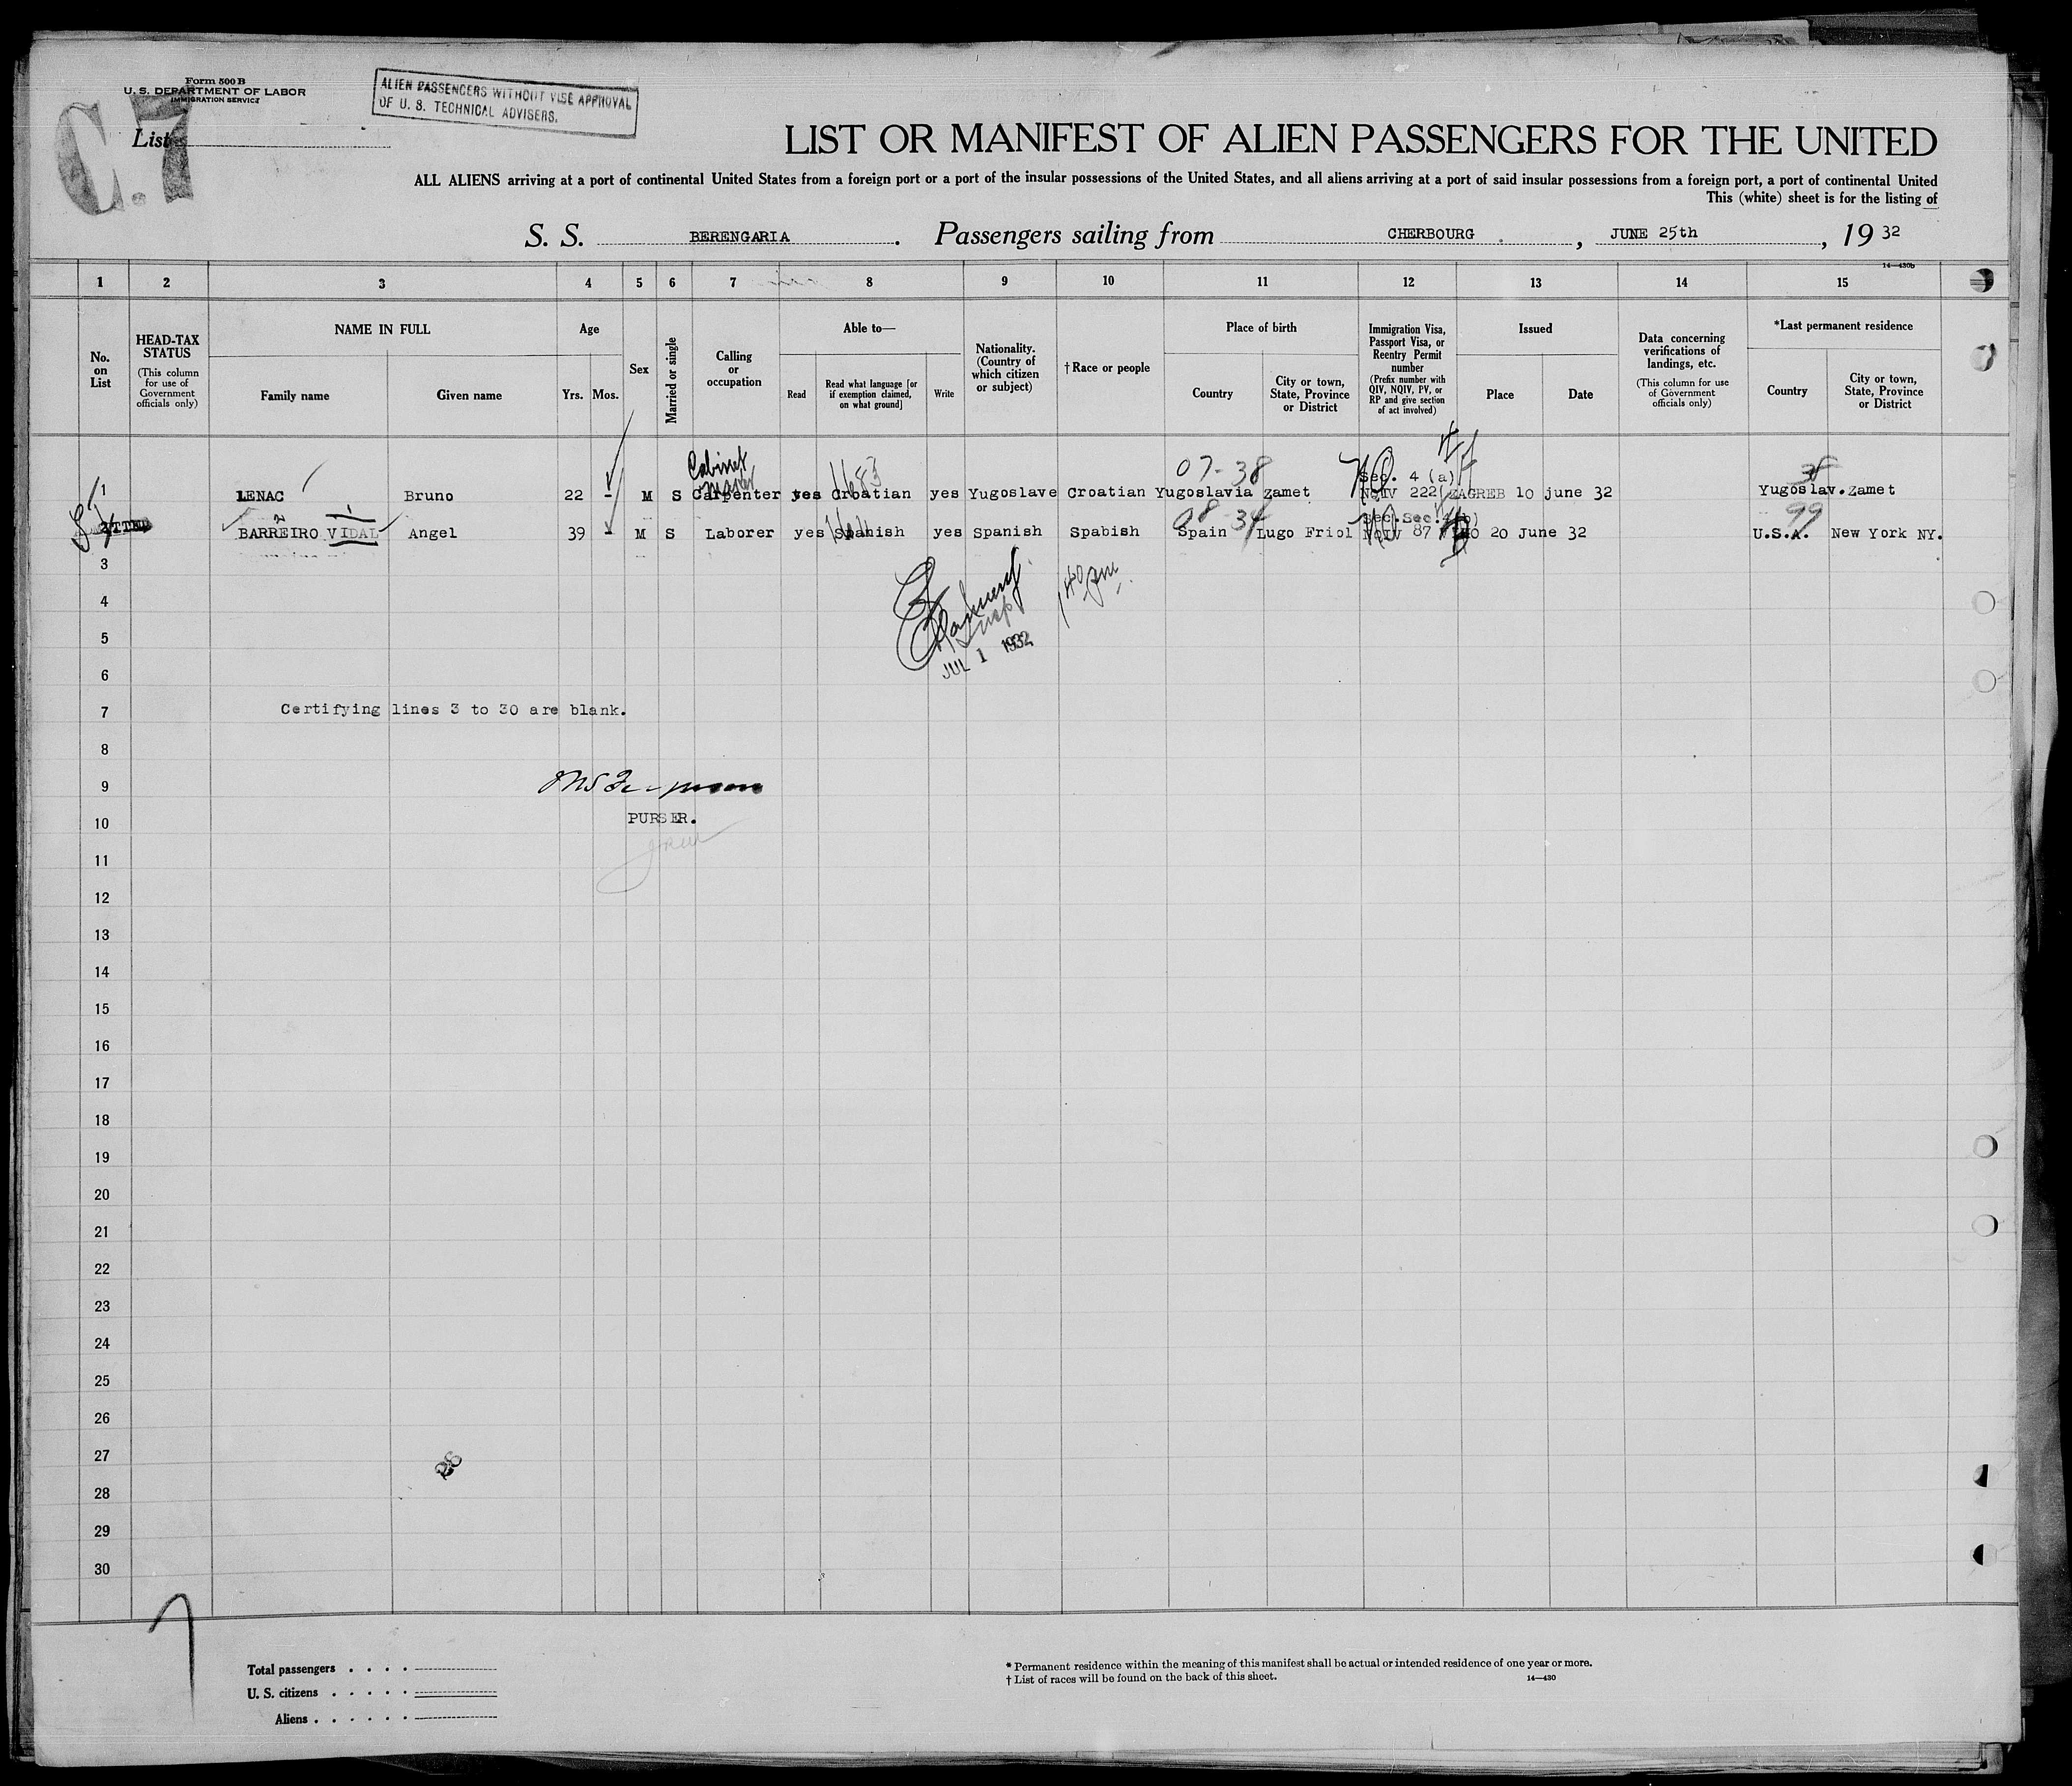 Form 500 B
U. S. DEPARTMENT OF LABOR
IMMIGRATION SERVICE
C.7
List
ALIEN PASSENGERS WITHOUT VISE APPROVAL
OF U. S. TECHNICAL ADVISERS.
LIST OR MANIFEST OF ALIEN PASSENGERS FOR THE UNITED
ALL ALIENS arriving at a port of continental United States from a foreign port or a port of the insular possessions of the United States, and all aliens arriving at a port of said insular possessions from a foreign port, a port of continental United
This (white) sheet is for the listing of
S. S. BERENGARIA. Passengers sailing from CHERBOURG, JUNE 25th, 19 32
14—430b
1 2 3 4 5 6 7 8 9 10 11 12 13 14 15
No. on List
HEAD-TAX STATUS (This column for use of Government officials only)
NAME IN FULL
Family name
Given name
Age
Yrs. Mos.
Sex
Married or single
Calling or occupation
Able to—
Read
Read what language [or if exemption claimed, on what ground]
Write
Nationality. (Country of which citizen or subject)
†Race or people
Place of birth
Country
City or town, State, Province or District
Immigration Visa, Passport Visa, or Reentry Permit number (Prefix number with QIV, NQIV, PV, or RP and give section of act involved)
Issued
Place
Date
Data concerning verifications of landings, etc. (This column for use of Government officials only)
*Last permanent residence
Country
City or town, State, Province or District
Cabinet maker 1683 07-38 Sec. 4 (a)
1 LENAC Bruno 22 - M S Carpenter yes Croatian yes Yugoslave Croatian Yugoslavia zamet NQIV 222 ZAGREB 10 june 32 Yugoslav. zamet
08-34 Sec. 4(b) 99
BARREIRO VIDAL Angel 39 - M S Laborer yes Spanish yes Spanish Spabish Spain Lugo Friol NQIV 87 20 June 32 U.S.A. New York NY.
3
4
5
JUL 1 1932
6
7 Certifying lines 3 to 30 are blank.
8
9
10 PURSER.
11
12
13
14
15
16
17
18
19
20
21
22
23
24
25
26
27
28
29
30
Total passengers
U. S. citizens
Aliens
* Permanent residence within the meaning of this manifest shall be actual or intended residence of one year or more.
† List of races will be found on the back of this sheet.
14—430